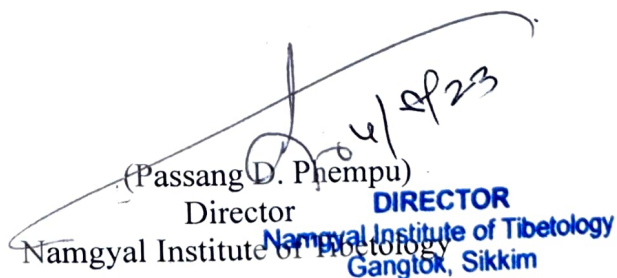 (Passang D. Phempu)
Director
Namgyal Institute of Tibetology
DIRECTOR
Namgyal Institute of Tibetology
Gangtok, Sikkim